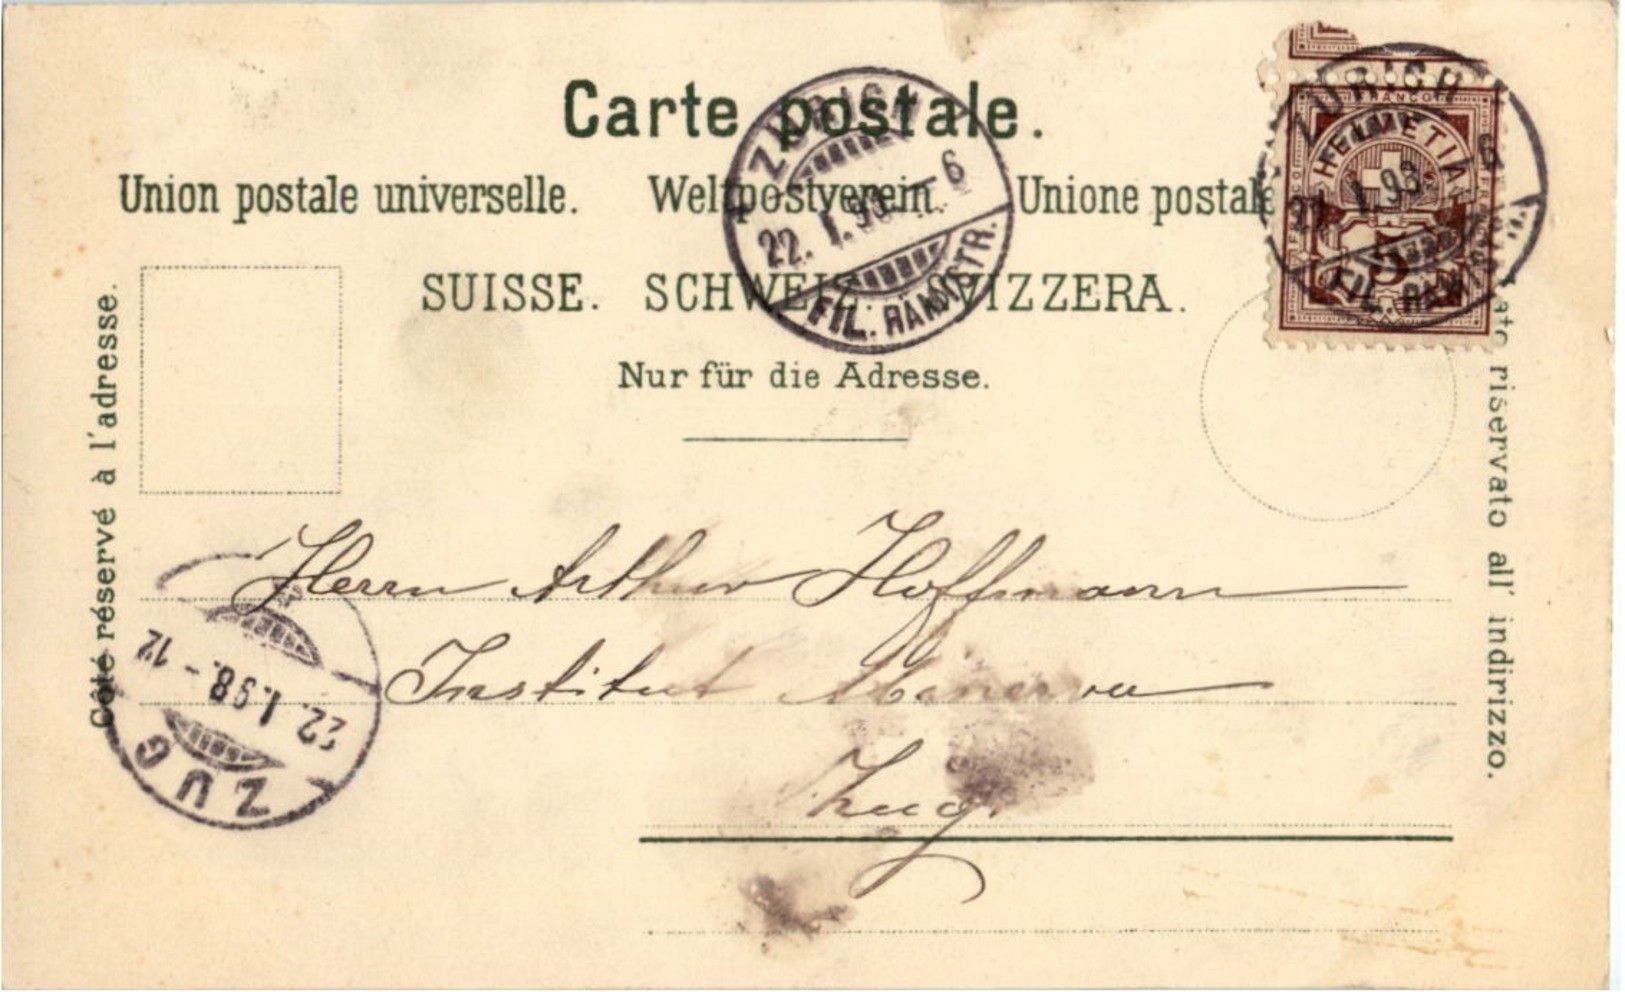 Carte postale.
Union postale universelle. Weltpostverein. Unione postale
SUISSE. SCHWEIZ. SVIZZERA.
Nur für die Adresse.
Côté réservé à l'adresse.
riservato all' indirizzo.
ZÜRICH
22. I. 98. – 6
FIL. RÄMISTR.
ZÜRICH
22. I. 98 6
FIL. RÄMISTR.
FRANCO
HELVETIA
5
Herrn Arthur Hoffmann
Institut Minerva
Zug.
ZUG
22. I. 98. – 12